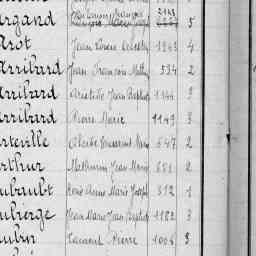 Jean François 2123
rgand 5
rot Jean Louis Celestin 1243 4
rribard Jean François 534 2
rribard Aristide Jean Baptiste 1144 3
rribard Pierre Marie 1149 3
rteville Alcide Toussaint 547 2
rthur Mathurin Jean Marie 651 2
ubault René Anne Marie Joseph 312 1
ubierge Jean Marie Jean Baptiste 1182 3
ubin Laurent Pierre 1005 3